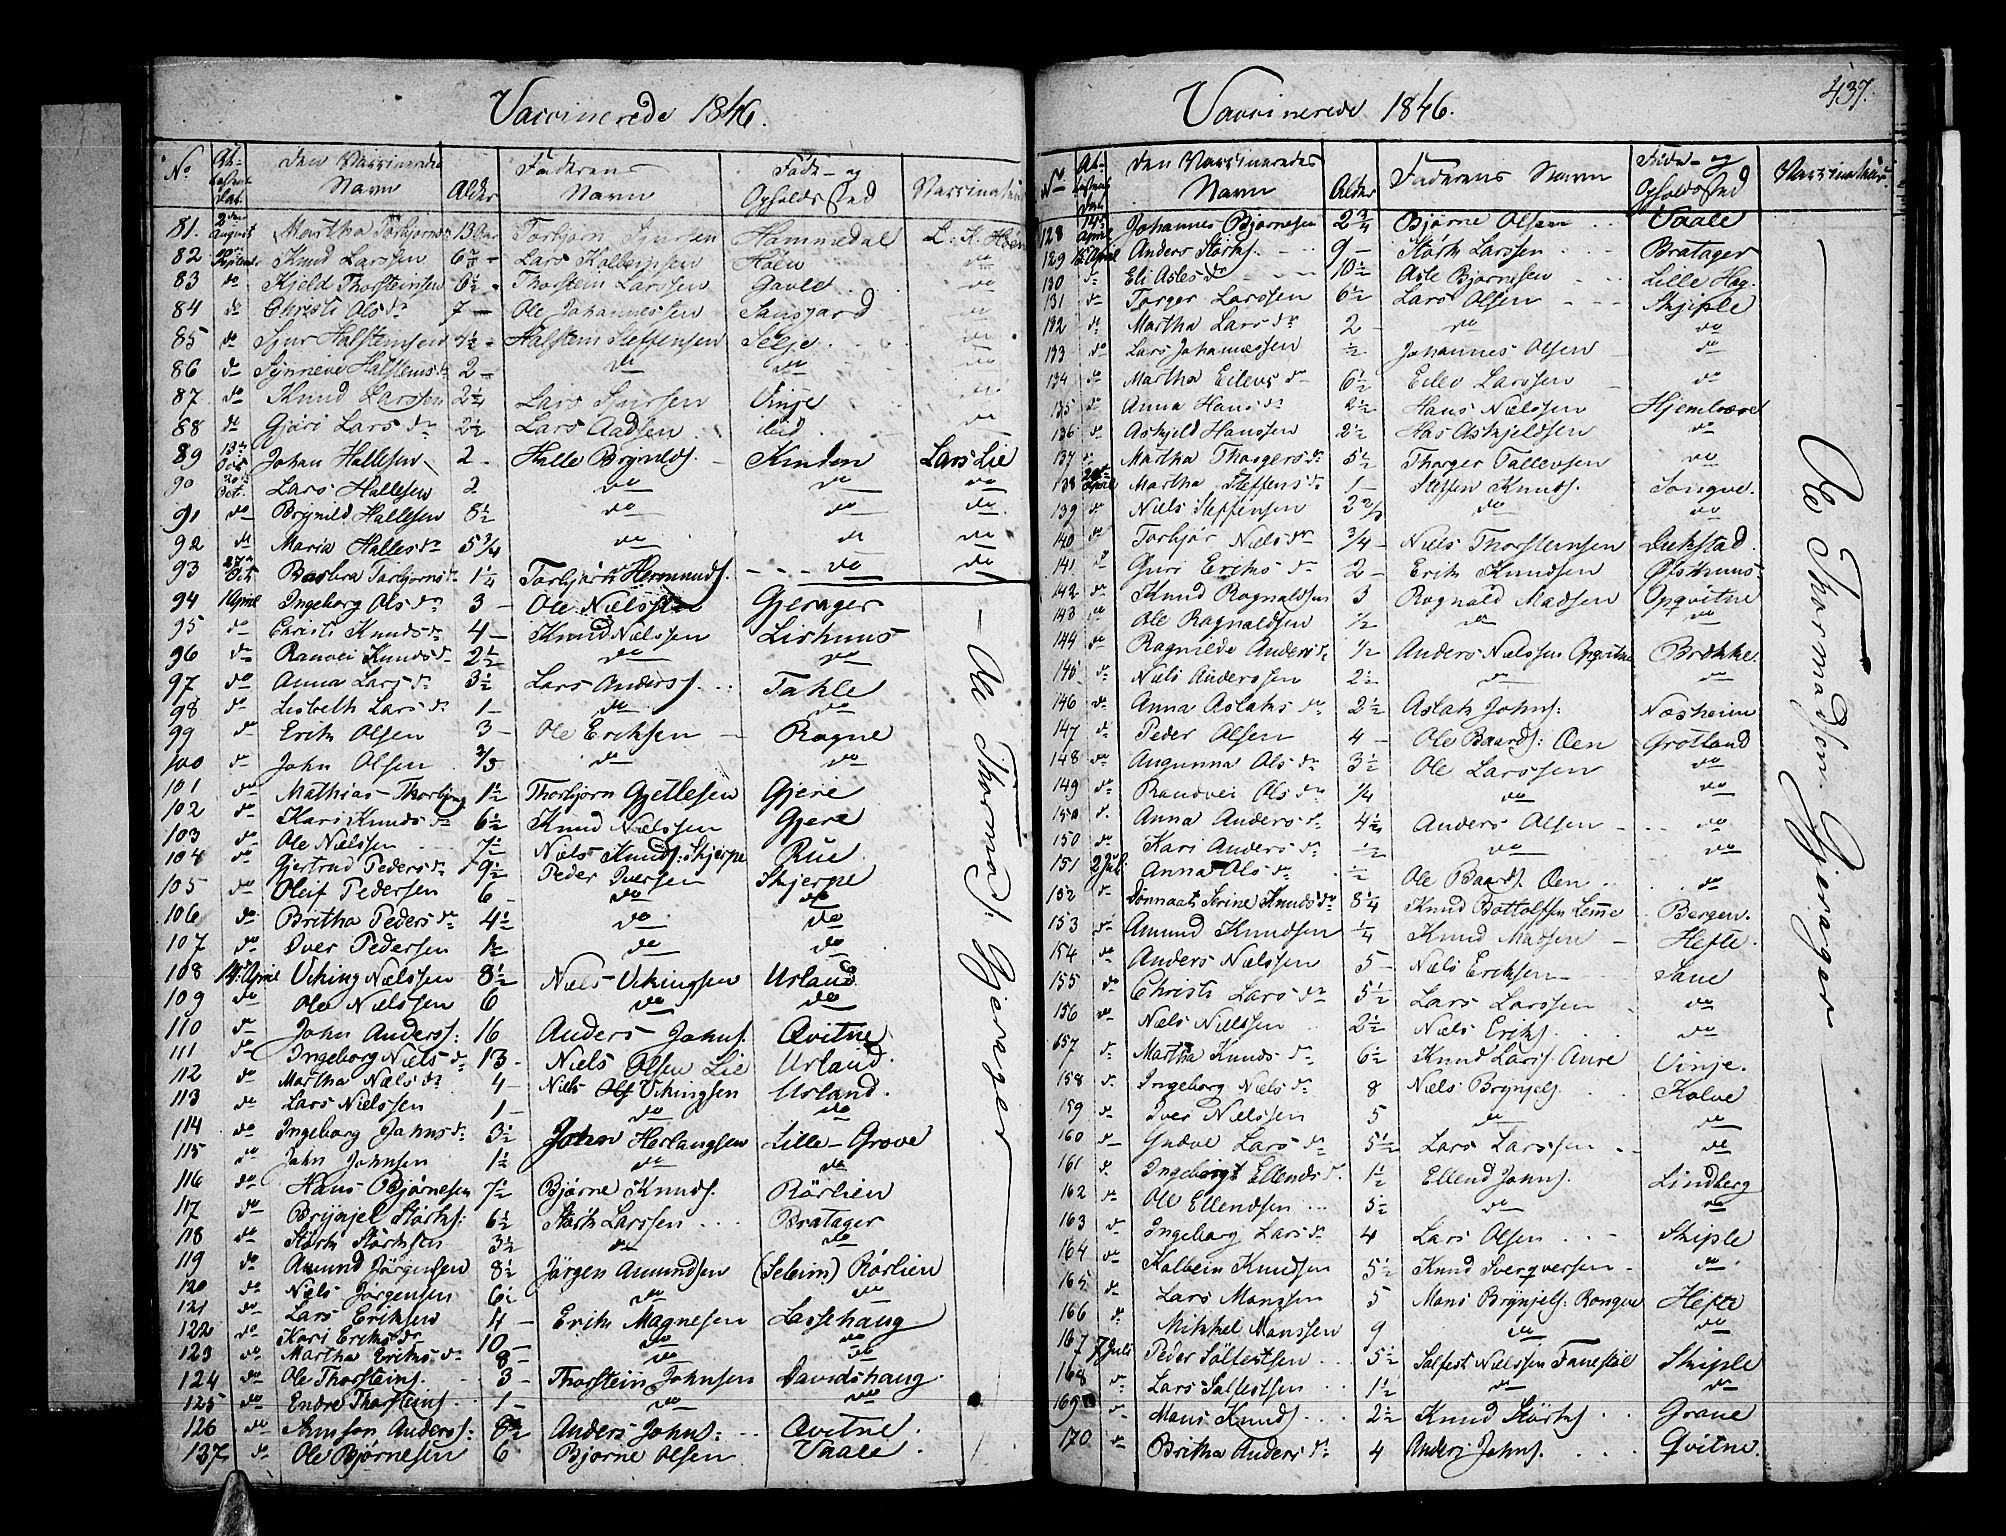 Vaccinerede 1846.
No At- testens Dat. den Vaccineredes Navn Alder Faderens Navn Føde- og Opholdssted Vaccinateur
81. 2den August Martha Torbjørnsdr 13 Aar Torbjørn Sjursen Hamnedal L. K. Høen
82 Knud Larssen 6 Lars Kolbeinsen Høen do
83 do Kjeld Thorsteinsen 6½ - Thorstein Larssen Gavle do
84 do Christi Olsdr 7 - Ole Johannessen Sausjord do
85 do Sjur Halsteinsen 4½ - Halstein Steffensen Selje do
86 do Synneve Halsteinsdr 2 - do do do
87 do Knud Larssen 2¼ Lars Sjursen Vinje do
88 do Guri Larsdr 2½ Lars Aadsen do
89 13de Oct Johan Hallesen 2 - Halle Brynilds. - Kinden Lars Lie
90 20de Oct. Lars Hallesen 2 do do do
91 do Brynild Hallesen 8½ do do do
92 do Maria Hallesdr 5¾ do do do
93 27de Oct Barbra Torbjørnsdr 1¼ Torbjørn Hermunds. - - - do do
94 1 April Ingeborg Olsdr 3 - Ole Nielssen Gjerager
95 do Christi Knudsdr 4 - Knud Nielssen Lishuus
96 do Ranvei Knudsdr 2½ do do
97 do Anna Larsdr 3½ Lars Anderss. Takle
98 do Lisbeth Larsdr 1 - do do
99 do Erik Olsen 3 - Ole Eriksen - Rogne
100 do John Olsen ⅔ do do
101 do Mathias Thorbjørns 1½ Thorbjørn Gjetlesen Gjere
102 do Kari Knudsdr 6½ Knud Nielssen Gjere
103 do Ole Nielssen 7½ Niels Knuds: Skjerpe Rue
104 do Gjertrud Pedersdr 9½ Peder Iversen Skjerpe
105 do Oleif Pedersen 6 - do do
106 do Britha Pedersdr 4½ do do
107 do Iver Pedersen 1½ do do
108 14de April Viking Nielssen 8½ Niels Vikingsen Urland
109 do Ole Nielssen 6 do do
110 do John Anderss: 16 Anders Johns. Qvitne
111 do Ingeborg Nielsdr 13 - Niels Olsen Lie Urland.
112 do Martha Nielsdr 4 - Niels Vikingsen Urland.
113 do Lars Nielssen 1 - do do
114 do Ingeborg Johnsdr 3½ John Herlaugsen Lille-Grove
115 do John Johnsen 1½ do do
116 do Hans Bjørnesen 7½ Bjørne Knuds. Rørlien
117 do Brynjel Størks: 6½ Størk Larssen Bratager
118 do Størk Størksen 3½ do do
119 do Amund Jørgensen 8½ Jørgen Amundsen (Seleim) Rørlien
120 do Niels Jørgensen 6½ do do
121 do Lars Eriksen 4 - Erik Magnesen Lassehaug
122 do Kari Eriksdr 10 - do do
123 do Martha Eriksdr 8 - do do
124 do Ole Thorsteins. 3 - Thorstein Johnsen Davidshaug
125 do Endre Thorsteins. 1 - do do
126 do Simson Anderss: 8½ Anders Johns: Qvitne
127 do Ole Bjørnesen 6 Bjørne Olsen Vaale
Ole Thormods. Gjerager
437.
Vaccinerede 1846.
No At- testens Dat. den Vaccineredes Navn Alder Faderens Navn Føde- og Opholdssted Vaccinateur.
128 14de April Johannes Bjørnesen 2¾ Bjørne Olsen Vaale
129 15 April Anders Størks. 9 - Størk Larssen Bratager
130 do Eli Aslesdr 10½ Asle Bjørnesen Lille Hag.
131 do Torger Larssen 6½ Lars Olsen Skjiple
132 do Martha Larsdr 2 - do do
133 do Lars Johannessen ½ Johannes Olsen do
134 do Martha Eilevsdr 6½ Eilev Larssen do
135 do Anna Hansdr 2½ Hans Nielssen Hjemlvere
136 do Askjeld Hanssen 2½ Hans Askjeldsen do
137 do Martha Thorgersdr 5½ Thorger Tallevsen do
138 20de April Martha Steffensdr 1 - Steffen Knuds. Songve.
139 do Niels Steffensen 2⅔ do do
140 do Torbjør Nielsdr ¾ - Niels Thorsteinsen Dukstad
141 do Guri Eriksdr 2 - Erik Knudsen
142 do Knud Rognaldsen 3 Rognald Madsen Opqvitne
143 do Ole Rognaldsen ½ do do
144 do Ragnilde Andersdr ½ Anders Nielssen Opqvitne Brekke.
145 do Niels Anderssen 2½ do do
146 do Anna Aslaksdr 2½ Aslak Johns: Næsheim
147 do Peder Olsen 4 - Ole Baards: Øen Grotland
148 do Augunna Olsdr 3½ Ole Larssen do
149 do Randvei Olsdr ¼ do do
150 do Anna Andersdr 4½ Anders Olsen do
150 do Kari Andersdr ½ do do
151 2 Juli Anna Olsdr ½ Ole Baards. Øen do
152 do Dønnaat Serine Knudsdr 8¼ Knud Bottolfsen Lemme Bergen.
153 do Amund Knudsen ¼ Knud Madsen - Hefte.
154 do Anders Nielssen 5 - Niels Eriksen Saue
155 do Christi Larsdr 5½ Lars Larssen do
156 do Niels Nielssen 2½ Niels Eriks. do
157 do Martha Knudsdr 6½ Knud Larss. Aure Vinje.
158 do Ingeborg Nielsdr 8 Niels Brynjels. Kolve
159 do Iver Nielssen 5 do do
160 do Gudve Larsdr 5½ Lars Larssen do
161 do Ingeborg Ellendsdr. 1½ Ellend Johns. Lindberg
162 do Ole Ellendsen 5½ do do
163 do Ingeborg Larsdr 4 Lars Olsen Skiple
164 do Kolbein Knudsen 5½ Knud Sverqversen - do.
165 do Lars Monssen 5 Mons Brynjels: Rongve Hefte
166 do Mikkel Monssen 9 do do
167 7 Juli Peder Sølfestsen 5½ Sølfest Nielssen Fanestøl Skiple
168 do Lars Sølfestsen 1½ do do
169 do Mons Knuds. 2½ Knud Størks. Grave
170 do Britha Andersdr 4 Anders Johns. Qvitne
Ole Thormodsen Gjerager